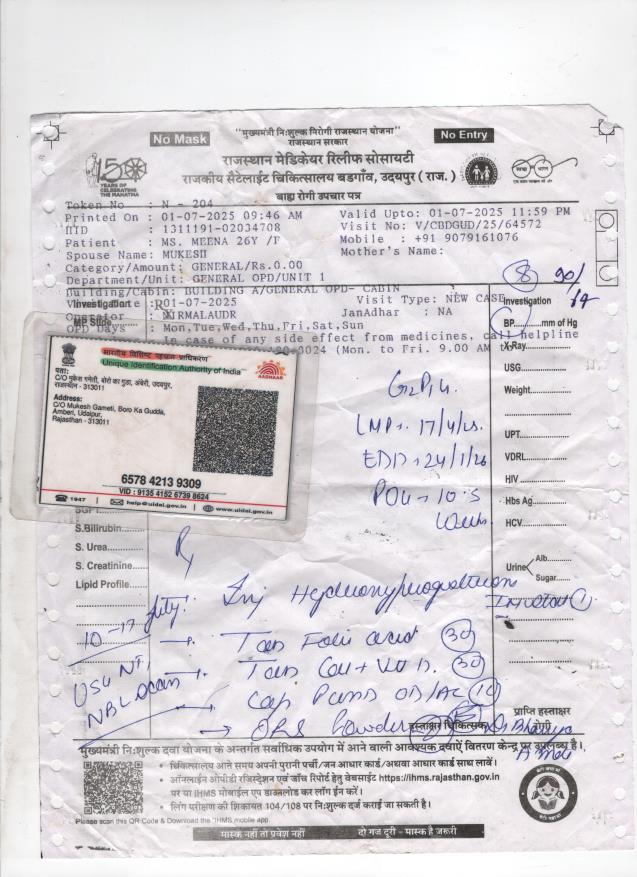 "मुख्यमंत्री निःशुल्क निरोगी राजस्थान योजना"
राजस्थान सरकार
No Mask
No Entry
राजस्थान मेडिकेयर रिलीफ सोसायटी
राजकीय सैटेलाईट चिकित्सालय बडगाँव, उदयपुर (राज.)
150 YEARS OF CELEBRATING THE MAHATMA
बाह्य रोगी उपचार पत्र
Token No : N - 204
Printed On : 01-07-2025 09:46 AM Valid Upto: 01-07-2025 11:59 PM
HID : 1311191-02034708 Visit No: V/CBDGUD/25/64572
Patient : MS. MEENA 26Y /F Mobile : +91 9079161076
Spouse Name: MUKESH Mother's Name:
Category/Amount: GENERAL/Rs.0.00
Department/Unit: GENERAL OPD/UNIT 1
Building/Cabin: BUILDING A/GENERAL OPD- CABIN
Date : 01-07-2025 Visit Type: NEW CASE
Investigation
Operator : NIRMALAUDR JanAadhar : NA
MP Slide
OPD Days : Mon,Tue,Wed,Thu,Fri,Sat,Sun
In case of any side effect from medicines, call helpline
(Mon. to Fri. 9.00 AM to
8 90/64
Investigation
BP......mm of Hg
X-Ray
USG
Weight
UPT
VDRL
HIV
Hbs Ag
HCV
Urine Alb. Sugar
भारतीय विशिष्ट पहचान प्राधिकरण
Unique Identification Authority of India
AADHAAR
पता:
C/O मुकेश गमेती, बोरो का गुडा, अंबेरी, उदयपुर,
राजस्थान - 313011
Address:
C/O Mukesh Gameti, Boro Ka Gudda,
Amberi, Udaipur,
Rajasthan - 313011
6578 4213 9309
VID : 9135 4152 6739 8624
1947 | help@uidai.gov.in | www.uidai.gov.in
SGPT
S.Bilirubin
S. Urea
S. Creatinine
Lipid Profile
LMP 17/4/25
EDD 24/1/26
POG 10.5
Week
Rx
Inj Hydroxyprogesterone
Tab Folic acid 30
Tab Cal + Vit D. 30
Cap Panto OD/AC 10
ORS Powder
USG NT,
NBL Scan
हस्ताक्षर चिकित्सक
प्राप्ति हस्ताक्षर
रोगी
मुख्यमंत्री निःशुल्क दवा योजना के अन्तर्गत सर्वाधिक उपयोग में आने वाली आवश्यक दवाऐं वितरण केन्द्र पर उपलब्ध है।
• चिकित्सालय आते समय अपनी पुरानी पर्ची/जन आधार कार्ड/अथवा आधार कार्ड साथ लावें।
• ऑनलाईन ओपीडी रजिस्ट्रेशन एवं जॉच रिपोर्ट हेतु वेबसाईट https://ihms.rajasthan.gov.in
पर या IHMS मोबाईल एप डाउनलोड कर लॉग ईन करें।
• लिंग परीक्षण की शिकायत 104/108 पर निःशुल्क दर्ज कराई जा सकती है।
Please scan this QR Code & Download the IHMS mobile app.
मास्क नहीं तो प्रवेश नहीं दो गज दूरी - मास्क है जरूरी